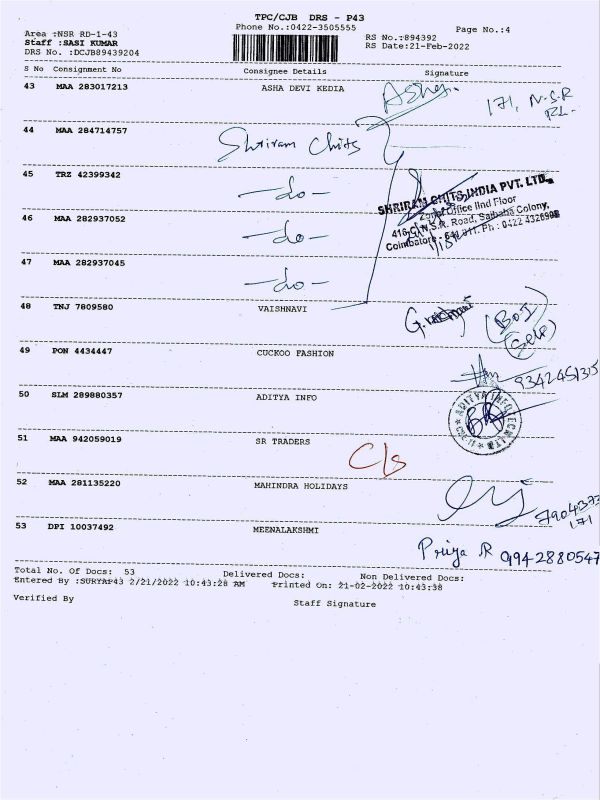 TPC/CJB DRS - P43
Phone No.:0422-3505555
Page No.:4
Area :NSR RD-1-43
RS No.:894392
Staff :SASI KUMAR
RS Date:21-Feb-2022
DRS No. :DCJB89439204
S No Consignment No Consignee Details Signature
43 MAA 283017213 ASHA DEVI KEDIA Asha.
171, N.S.R
Rd.
44 MAA 284714757 Shriram Chits
45 TRZ 42399342 -do-
SHRIRAM CHITS INDIA PVT. LTD.,
Zonal Office IInd Floor
46 MAA 282937052 -do-
416, N.S.R. Road, Saibaba Colony,
Coimbatore - 641 011. Ph : 0422 4326998
47 MAA 282937045 -do-
48 TNJ 7809580 VAISHNAVI
(Self)
49 PON 4434447 CUCKOO FASHION
9342451315
50 SLM 289880357 ADITYA INFO
ADITYA INFO
51 MAA 942059019 SR TRADERS
C/s
52 MAA 281135220 MAHINDRA HOLIDAYS
171
53 DPI 10037492 MEENALAKSHMI
Priya R 9942880547
Total No. Of Docs: 53 Delivered Docs: Non Delivered Docs:
Entered By :SURYAP43 2/21/2022 10:43:28 AM Printed On: 21-02-2022 10:43:38
Verified By Staff Signature